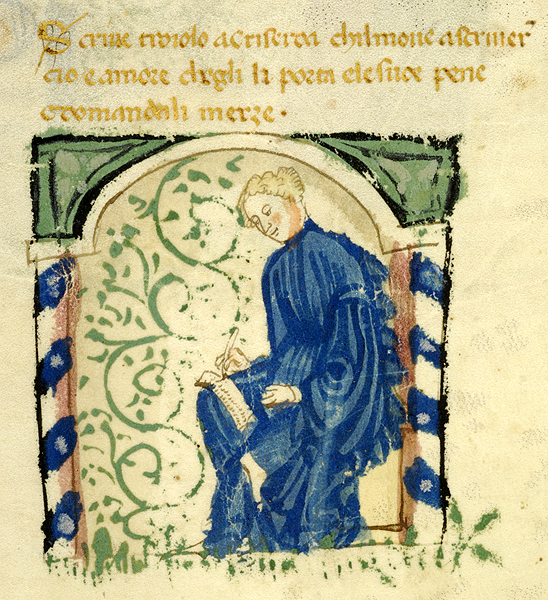 Scrive troiolo a criseida chilmove a scriver
cio e amore chegli li porta e le sue pene
e domandali merze ·